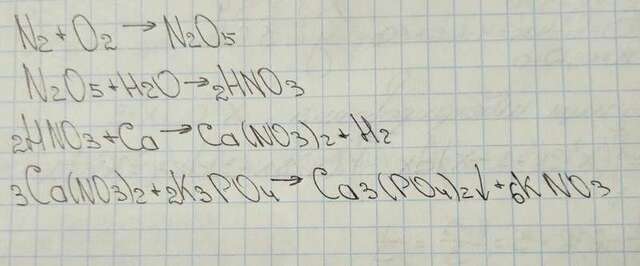 N2+O2→N2O5
N2O5+H2O→2HNO3
2HNO3+Ca→Ca(NO3)2+H2
3Ca(NO3)2+2K3PO4→Ca3(PO4)2↓+6KNO3